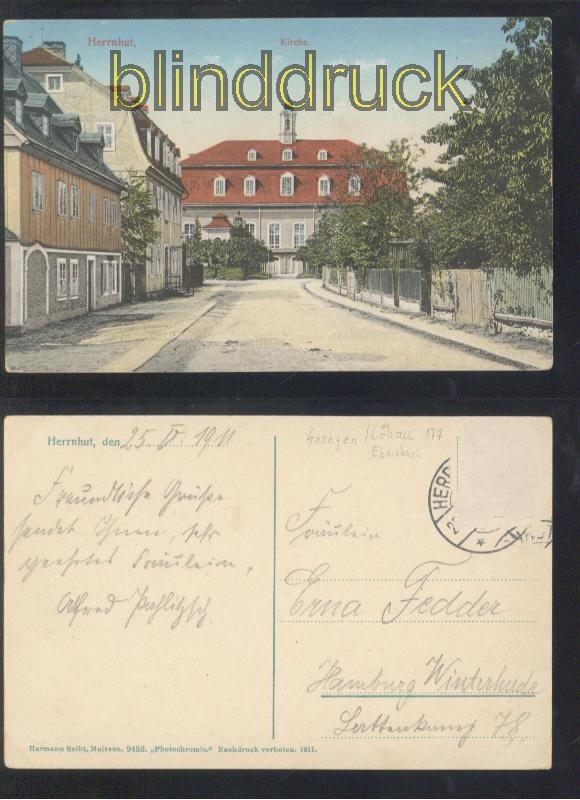 Herrnhut,
Kirche.
blinddruck
Herrnhut, den 25. IV. 1911
Sachsen / Löbau 177
Ebersbach
Freundliche Grüße
sendet Ihnen, sehr
geehrtes Fräulein,
Alfred Pahlitzsch.
HERR
Fräulein
Erna Fedder
Hamburg Winterhude
78
Hermann Seibt, Meissen. 9452. „Photochromie.“ Nachdruck verboten. 1911.